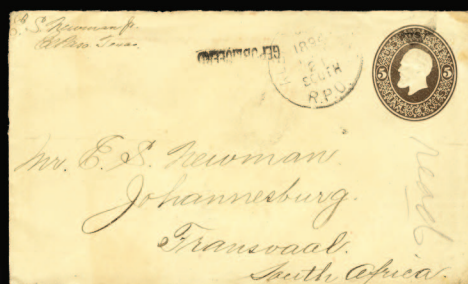 S. Newman Jr.
El Paso Texas.
1894
SOUTH
R.P.O.
5 5
Mr. E. S. Newman.
Johannesburg.
Transvaal.
South Africa.
read